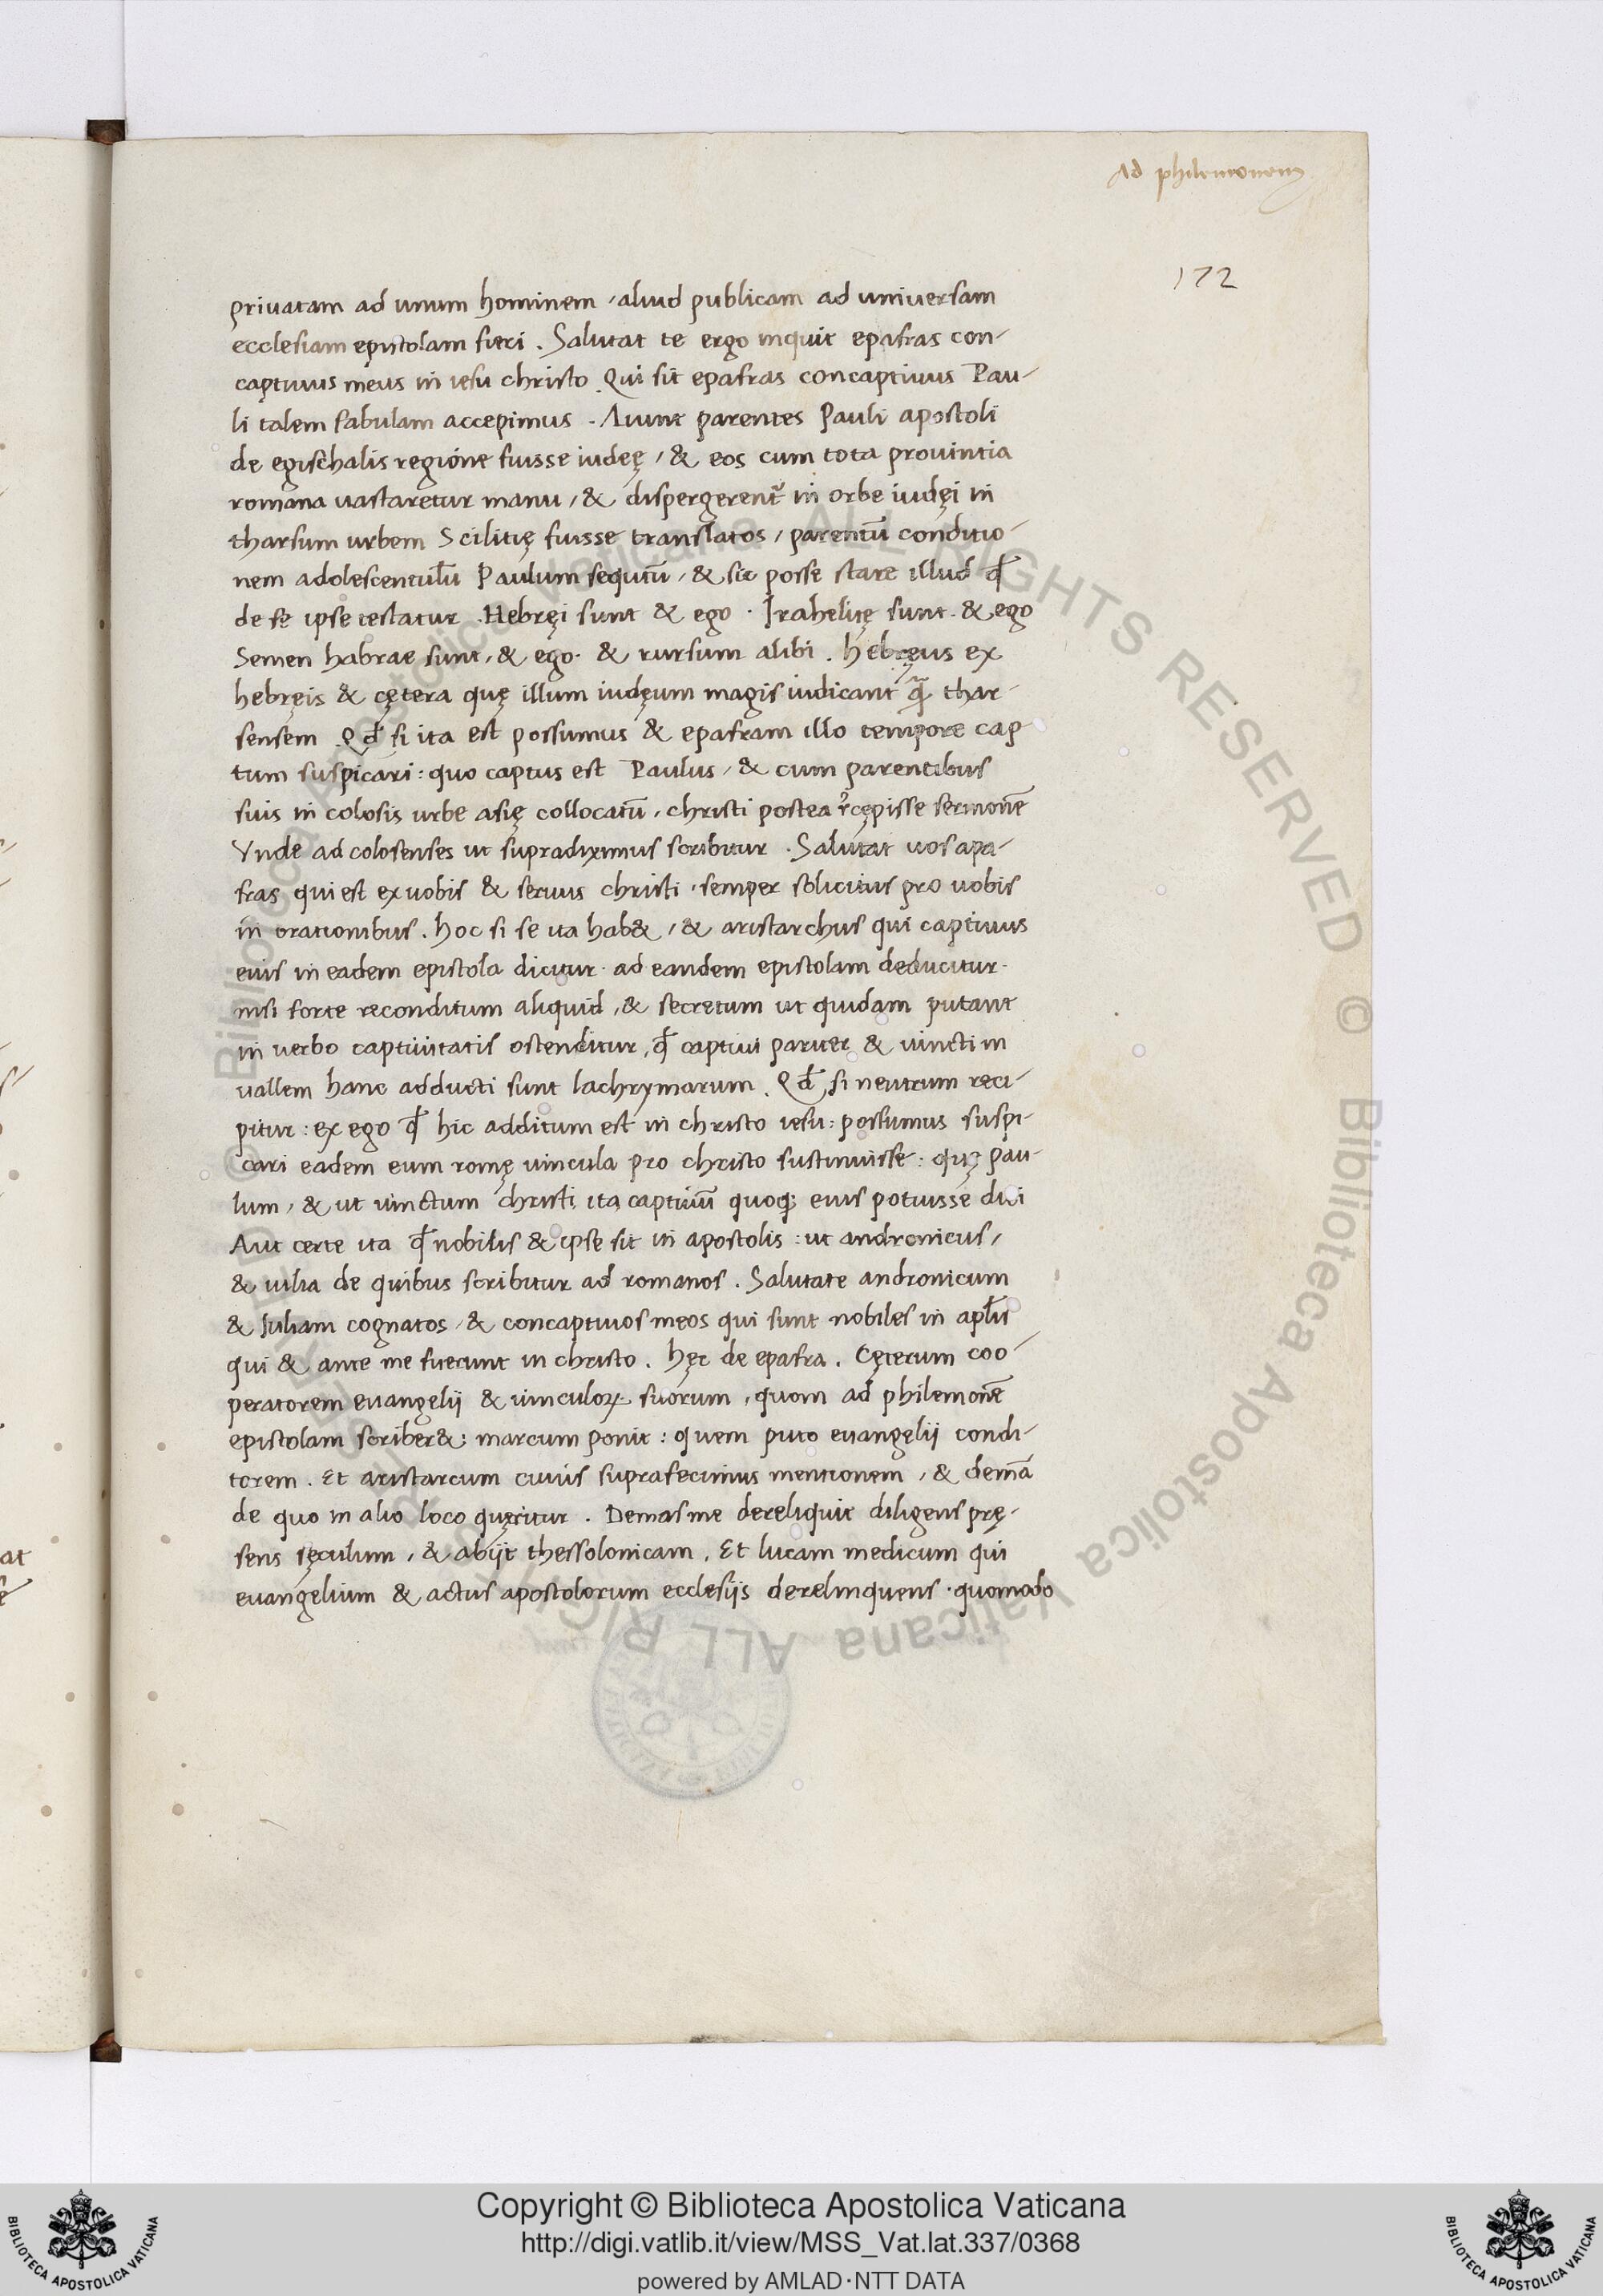 Ad philemonem
172
priuatam ad unum hominem / aliud publicam ad uniuersam
ecclesiam epistolam fieri . Salutat te ergo inquit epafras con-
captiuus meus in iesu christo . Qui sit epafras concaptiuus Pau-
li talem fabulam accepimus . Aiunt parentes Pauli apostoli
de egischalis regione fuisse iudeę / & eos cum tota prouintia
romana uastaretur manu / & dispergerent᷑ in orbe iudęi in
tharsum urbem Scilitię fuisse translatos / parentū conditio-
nem adolescentulū Paulum sequtū / & sic posse stare illud qđ
de se ipse testatur . Hebręi sunt & ego . Irahelitę sunt . & ego
Semen habrae sunt , & ego . & rursum alibi . hebręus ex
hebręis & cętera quę illum iudęum magis iudicant q̃ thar-
sensem . Qđ si ita est possumus & epafram illo tempore cap
tum suspicari : quo captus est Paulus / & cum parentibus
suis in colosis urbe asię collocatū , christi postea r̃cępisse sermonē
Vnde ad colosenses ut supradiximus scribitur . Salutat uos apa-
fras qui est ex uobis & seruus christi , semper solicitus pro uobis
in orationibus . hoc si se ita hab& , & aristarchus qui captiuus
eius in eadem epistola dicitur . ad eandem epistolam deducitur .
nisi forte reconditum aliquid , & secretum ut quidam putant
in uerbo captiuitatis ostenditur , qđ captiui pariter & uincti in
uallem hanc adducti sunt lachrymarum . Qđ si neutrum reci-
pitur : ex ego qđ hic additum est in christo iesu : possumus suspi-
cari eadem eum romę uincula pro christo sustinuisse : quę pau-
lum , & ut uinctum christi ita captiuū quoq; eius potuisse dici
Aut certe ita qđ nobilis & ipse sit in apostolis : ut andronicus /
& iulia de quibus scribitur ad romanos . Salutate andronicum
& Iuliam cognatos , & concaptiuos meos qui sunt nobiles in apl̃is
qui & ante me fuerunt in christo . hęc de epafra . Cęterum coo-
peratorem euangelij & uinculoꝝ suorum , quom ad philemonē
epistolam scriber& : marcum ponit : quem puto euangelij condi-
torem . Et aristarcum cuius supra fecimus mentionem , & demā
de quo in alio loco quęritur . Demas me dereliquit diligens prę-
sens sęculum , & abijt thessolonicam . Et lucam medicum qui
euangelium & actus apostolorum ecclesijs derelinquens . quomodo
Copyright © Biblioteca Apostolica Vaticana
http://digi.vatlib.it/view/MSS_Vat.lat.337/0368
powered by AMLAD·NTT DATA